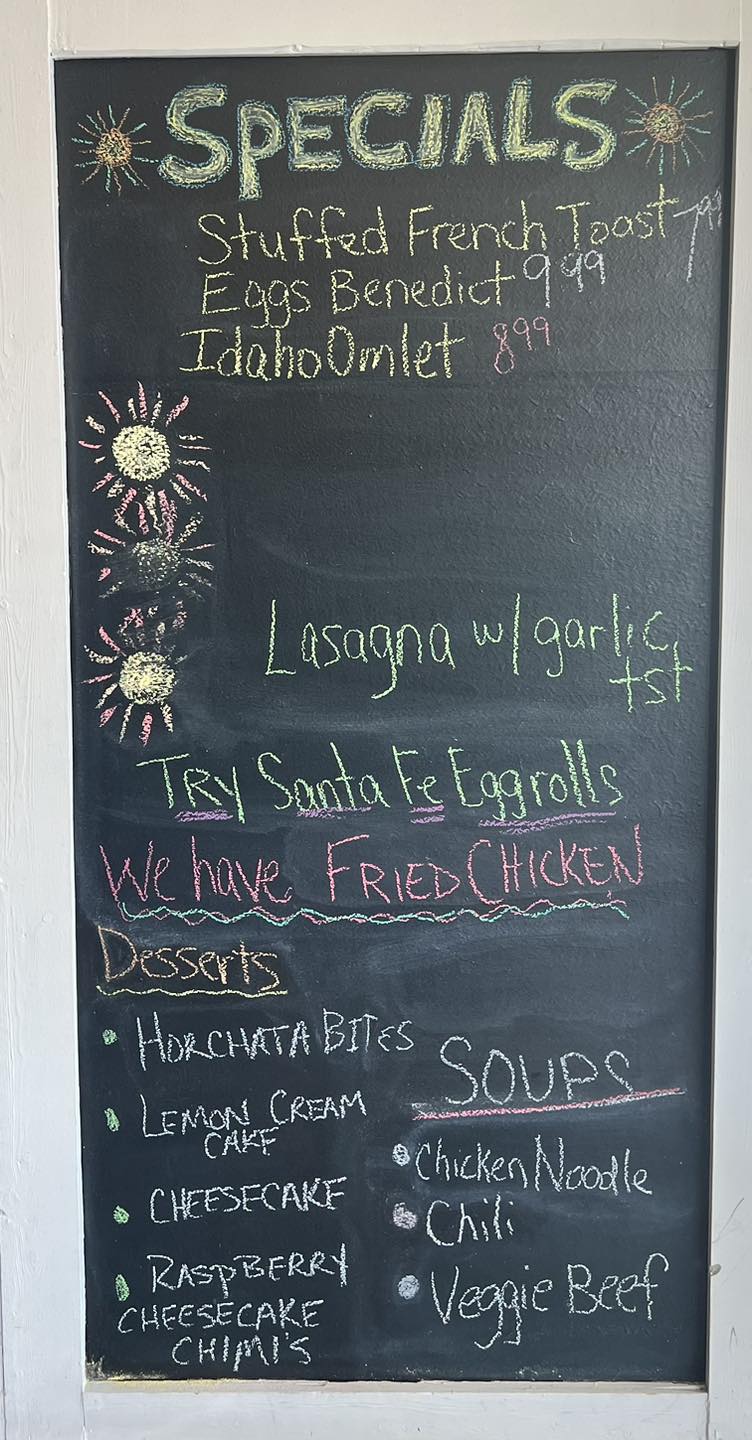 SPECIALS
Stuffed French Toast 799
Eggs Benedict 999
Idaho Omlet 899
Lasagna w/ garlic
tst
TRY Santa Fe Eggrolls
We have FRIED CHICKEN
Desserts
• HORCHATA BITES
• LEMON CREAM
CAKE
• CHEESECAKE
• RASPBERRY
CHEESECAKE
CHIMI'S
SOUPS
• Chicken Noodle
• Chili
• Veggie Beef